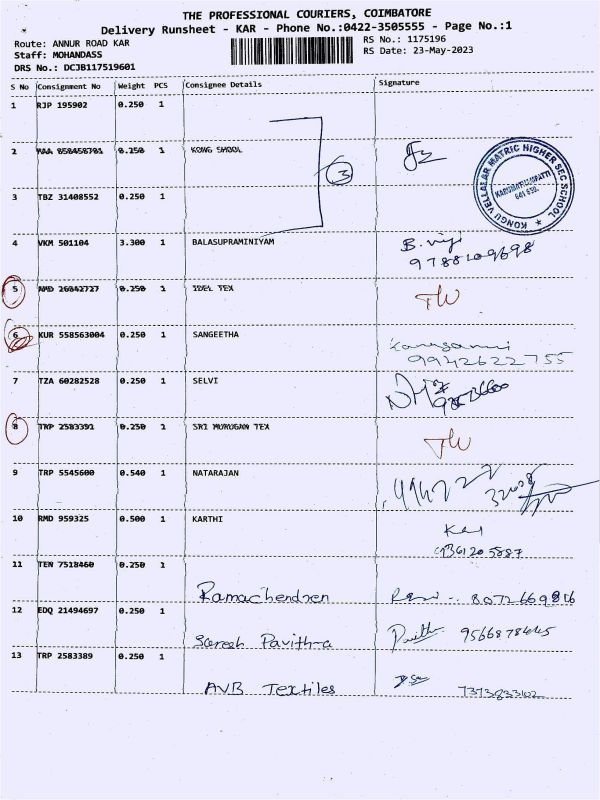 THE PROFESSIONAL COURIERS, COIMBATORE
Delivery Runsheet - KAR - Phone No.:0422-3505555 - Page No.:1
Route: ANNUR ROAD KAR
RS No.: 1175196
Staff: MOHANDASS
RS Date: 23-May-2023
DRS No.: DCJB117519601
S No Consignment No Weight PCS Consignee Details Signature
1 RJP 195902 0.250 1
2 0.250 1 KONG SHOOL
3
KONGU VELLALAR MATRIC HIGHER SEC SCHOOL
641 659
3 TBZ 31408552 0.250 1
4 VKM 501104 3.300 1 BALASUPRAMINIYAM
B. viji
5 AMD 26942727 0.250 1 IDEL TEX
6 KUR 558563004 0.250 1 SANGEETHA
9942622755
7 TZA 60282528 0.250 1 SELVI
8 TRP 2583391 0.250 1 SRI MURUGAN TEX
9 TRP 5545600 0.540 1 NATARAJAN
10 RMD 959325 0.500 1 KARTHI
11 TEN 7518460 0.250 1
Ramachendren 8072669816
12 EDQ 21494697 0.250 1
Pavithra
13 TRP 2583389 0.250 1
AVB Textiles 7373833102